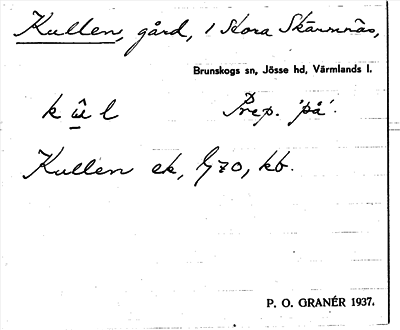 Kullen, gård, i Stora Skärmnäs,
Brunskogs sn, Jösse hd, Värmlands l.
k û l Prep. 'på'.
Kullen ek, G 70, kb.
P. O. GRANÉR 1937.